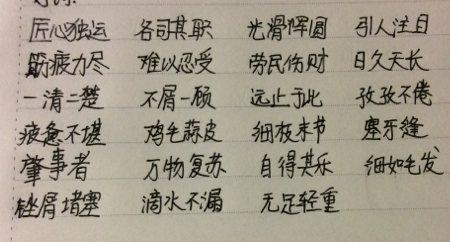 匠心独运 各司其职 光滑浑圆 引人注目
筋疲力尽 难以忍受 劳民伤财 日久天长
一清二楚 不屑一顾 远止于此 孜孜不倦
疲惫不堪 鸡毛蒜皮 细枝末节 塞牙缝
肇事者 万物复苏 自得其乐 细如毛发
锉屑堵塞 滴水不漏 无足轻重